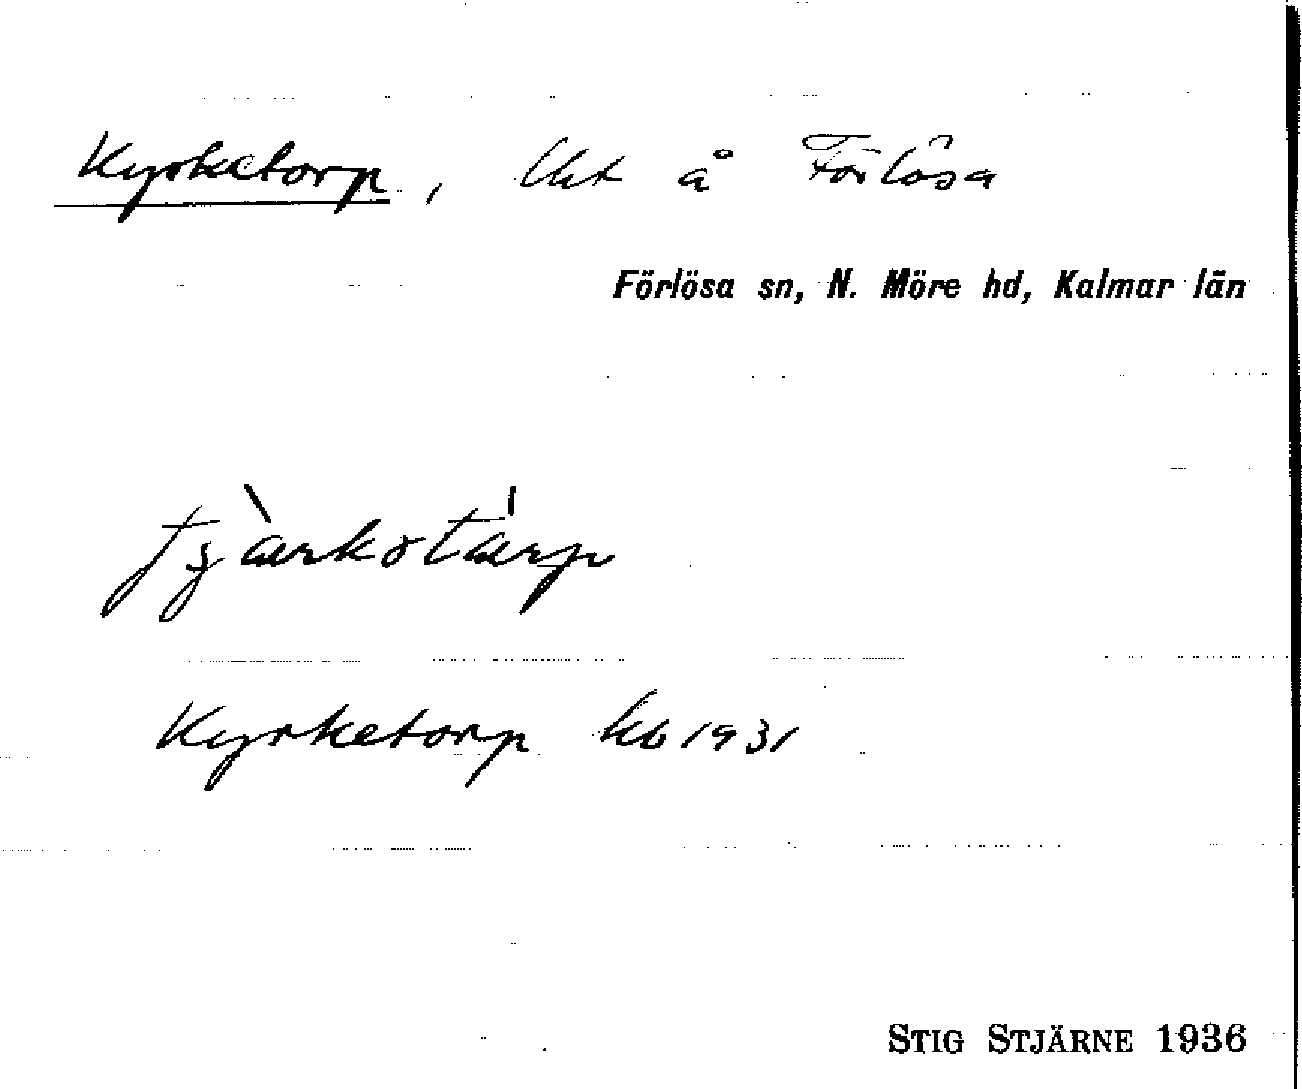 Kyrketorp, lht å Förlösa
Förlösa sn, N. Möre hd, Kalmar län
Kyrketorp kb 1931
STIG STJÄRNE 1936